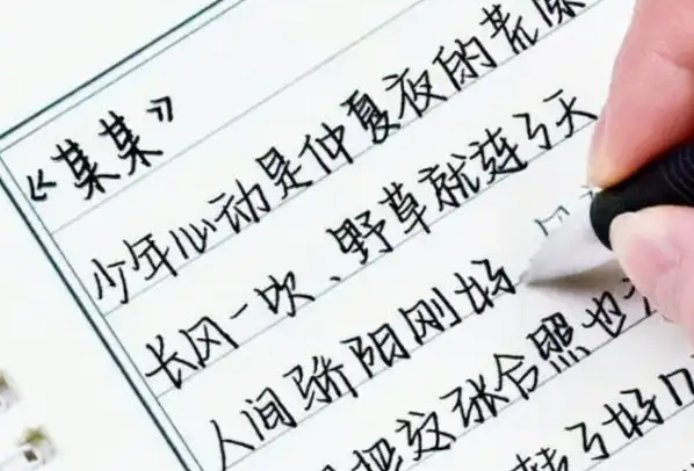 《某某》
少年心动是仲夏夜的荒
长风一吹、野草就连了天
人间骄阳刚好
把这张合照也
了好几